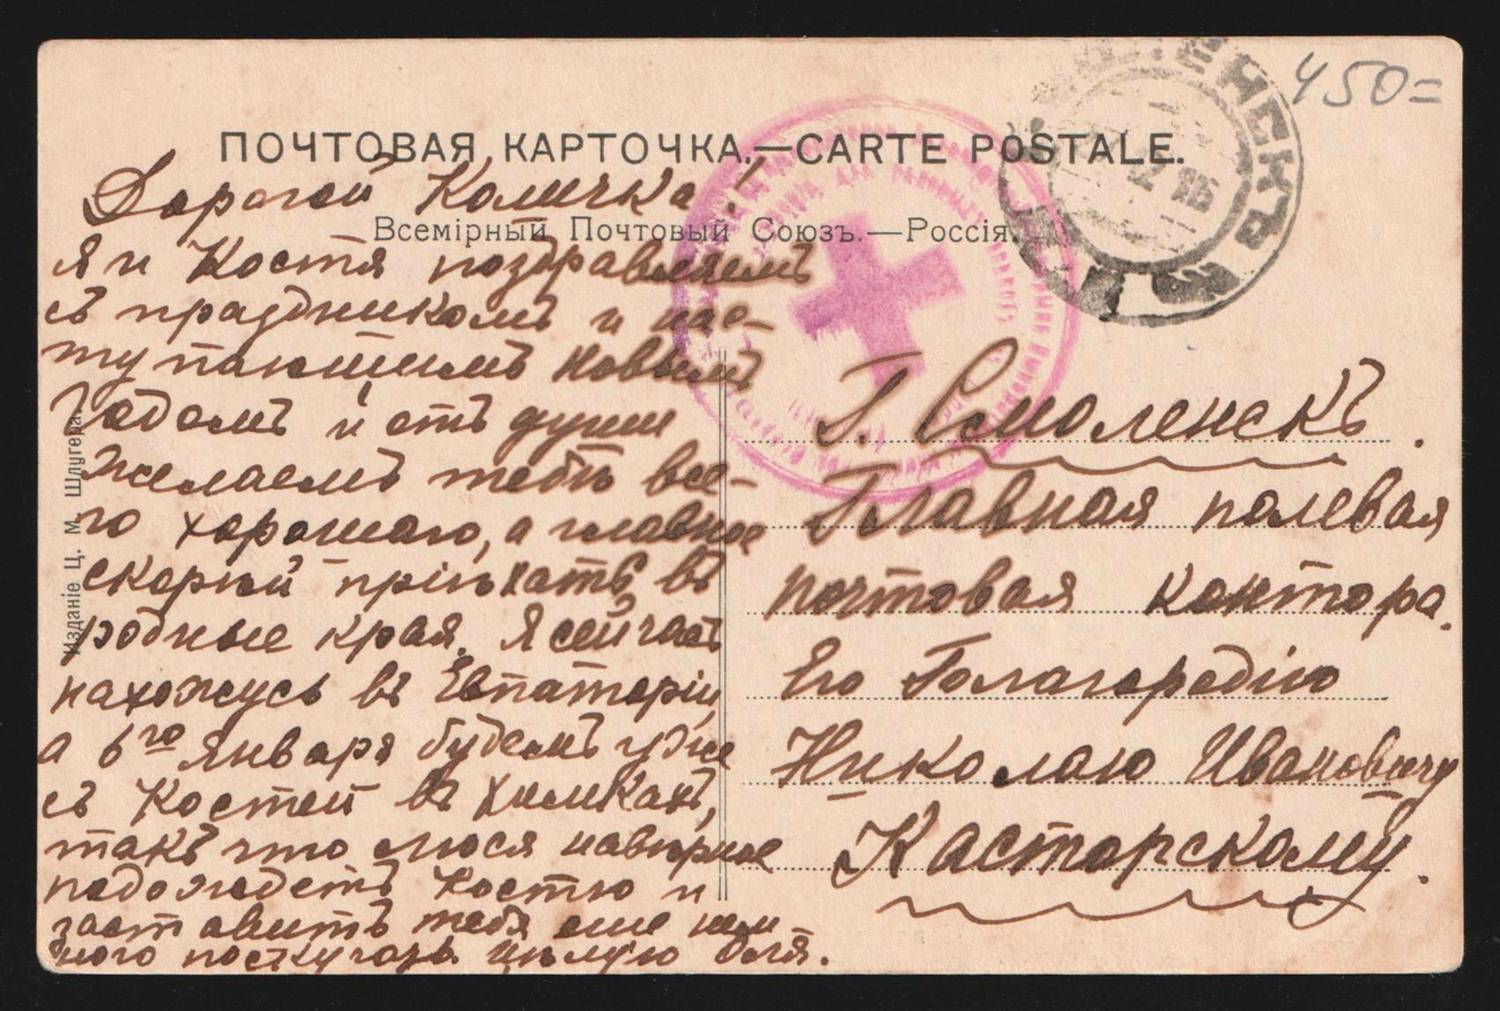 450=
ПОЧТОВАЯ КАРТОЧКА.—CARTE POSTALE.
Всемірный Почтовый Союзъ.—Россія.
Дорогой Количка!
Я и Костя поздравляемъ
съ праздникомъ и нас-
тупающимъ новымъ
годомъ и отъ души
желаемъ тебѣ все-
го хорошаго, а главное
скорѣй пріѣхать въ
родные края. Я сейчасъ
нахожусь въ Евпаторіи,
а 6го января будемъ уже
съ Костей въ Химкахъ,
такъ что Люся навѣрное
подождетъ Костю и
заставитъ тебя еще нем
ного поскучать. Цѣлую Оля.
Г. Смоленскъ.
Главная полевая
почтовая контора.
Его Благородію
Николаю Ивановичу
Касторскому.
Изданіе Ц. М. Шлугера.